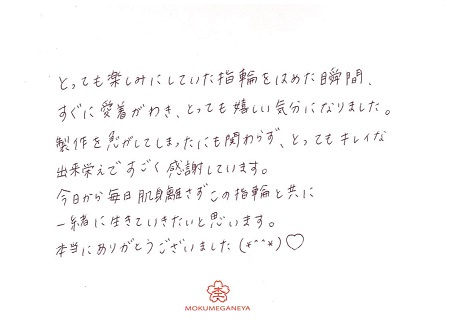 とっても楽しみにしていた指輪をはめた瞬間、
すぐに愛着がわき、とっても嬉しい気分になりました。
製作を急がしてしまったにも関わらず、とってもキレイな
出来栄えですごく感謝しています。
今日から毎日肌身離さずこの指輪と共に
一緒に生きていきたいと思います。
本当にありがとうございました(*^^*)♡
MOKUMEGANEYA